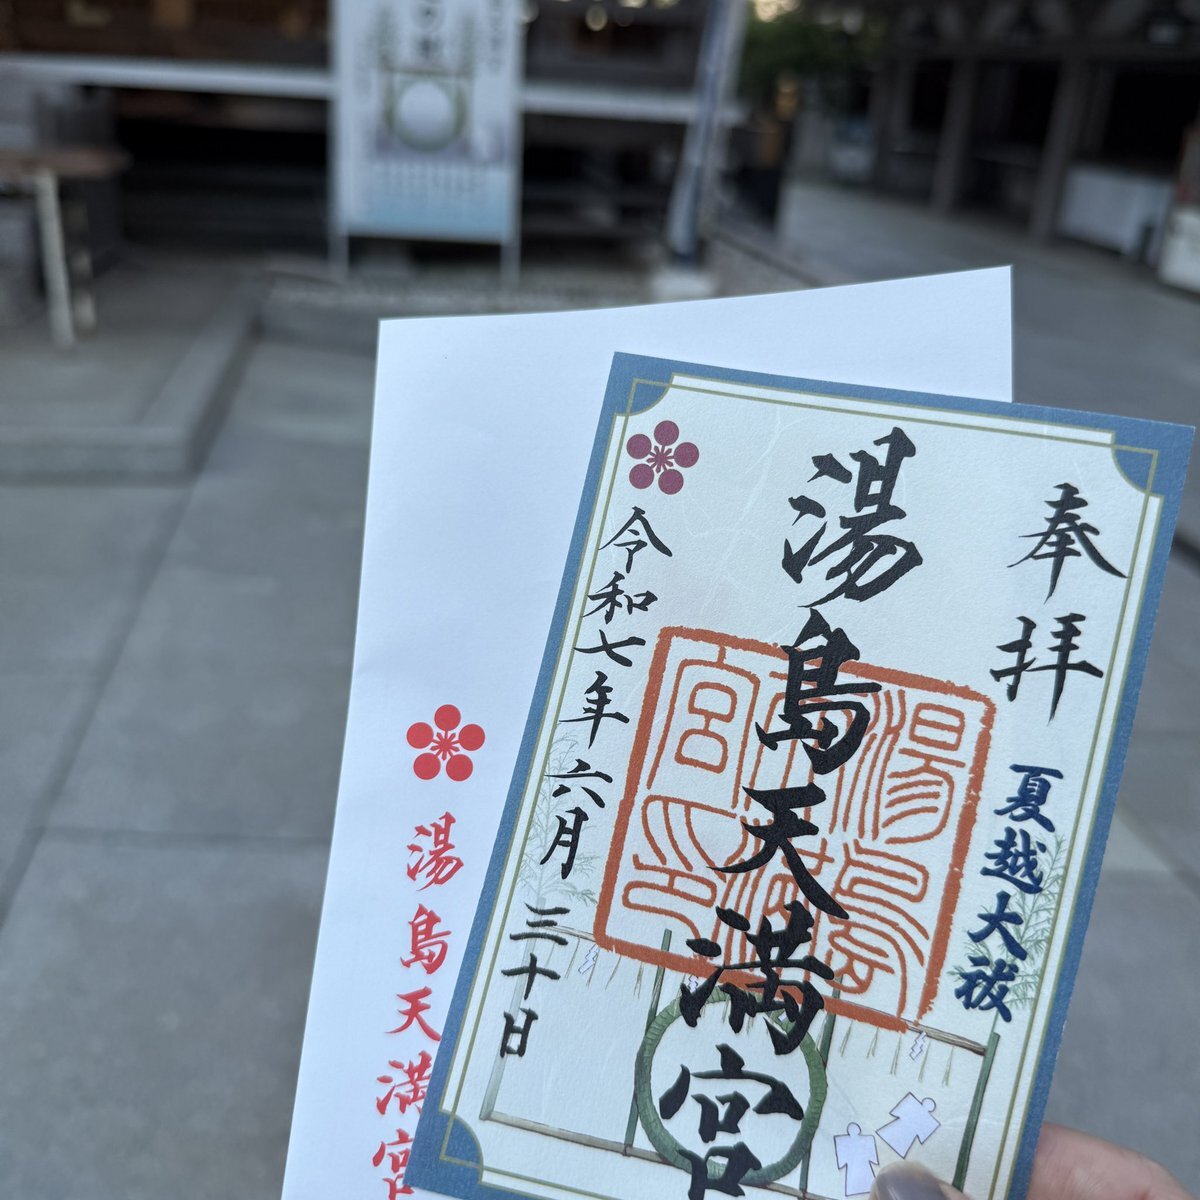 奉拝
夏越大祓
湯島天満宮
令和七年六月三十日
湯島天満宮
湯島天満宮